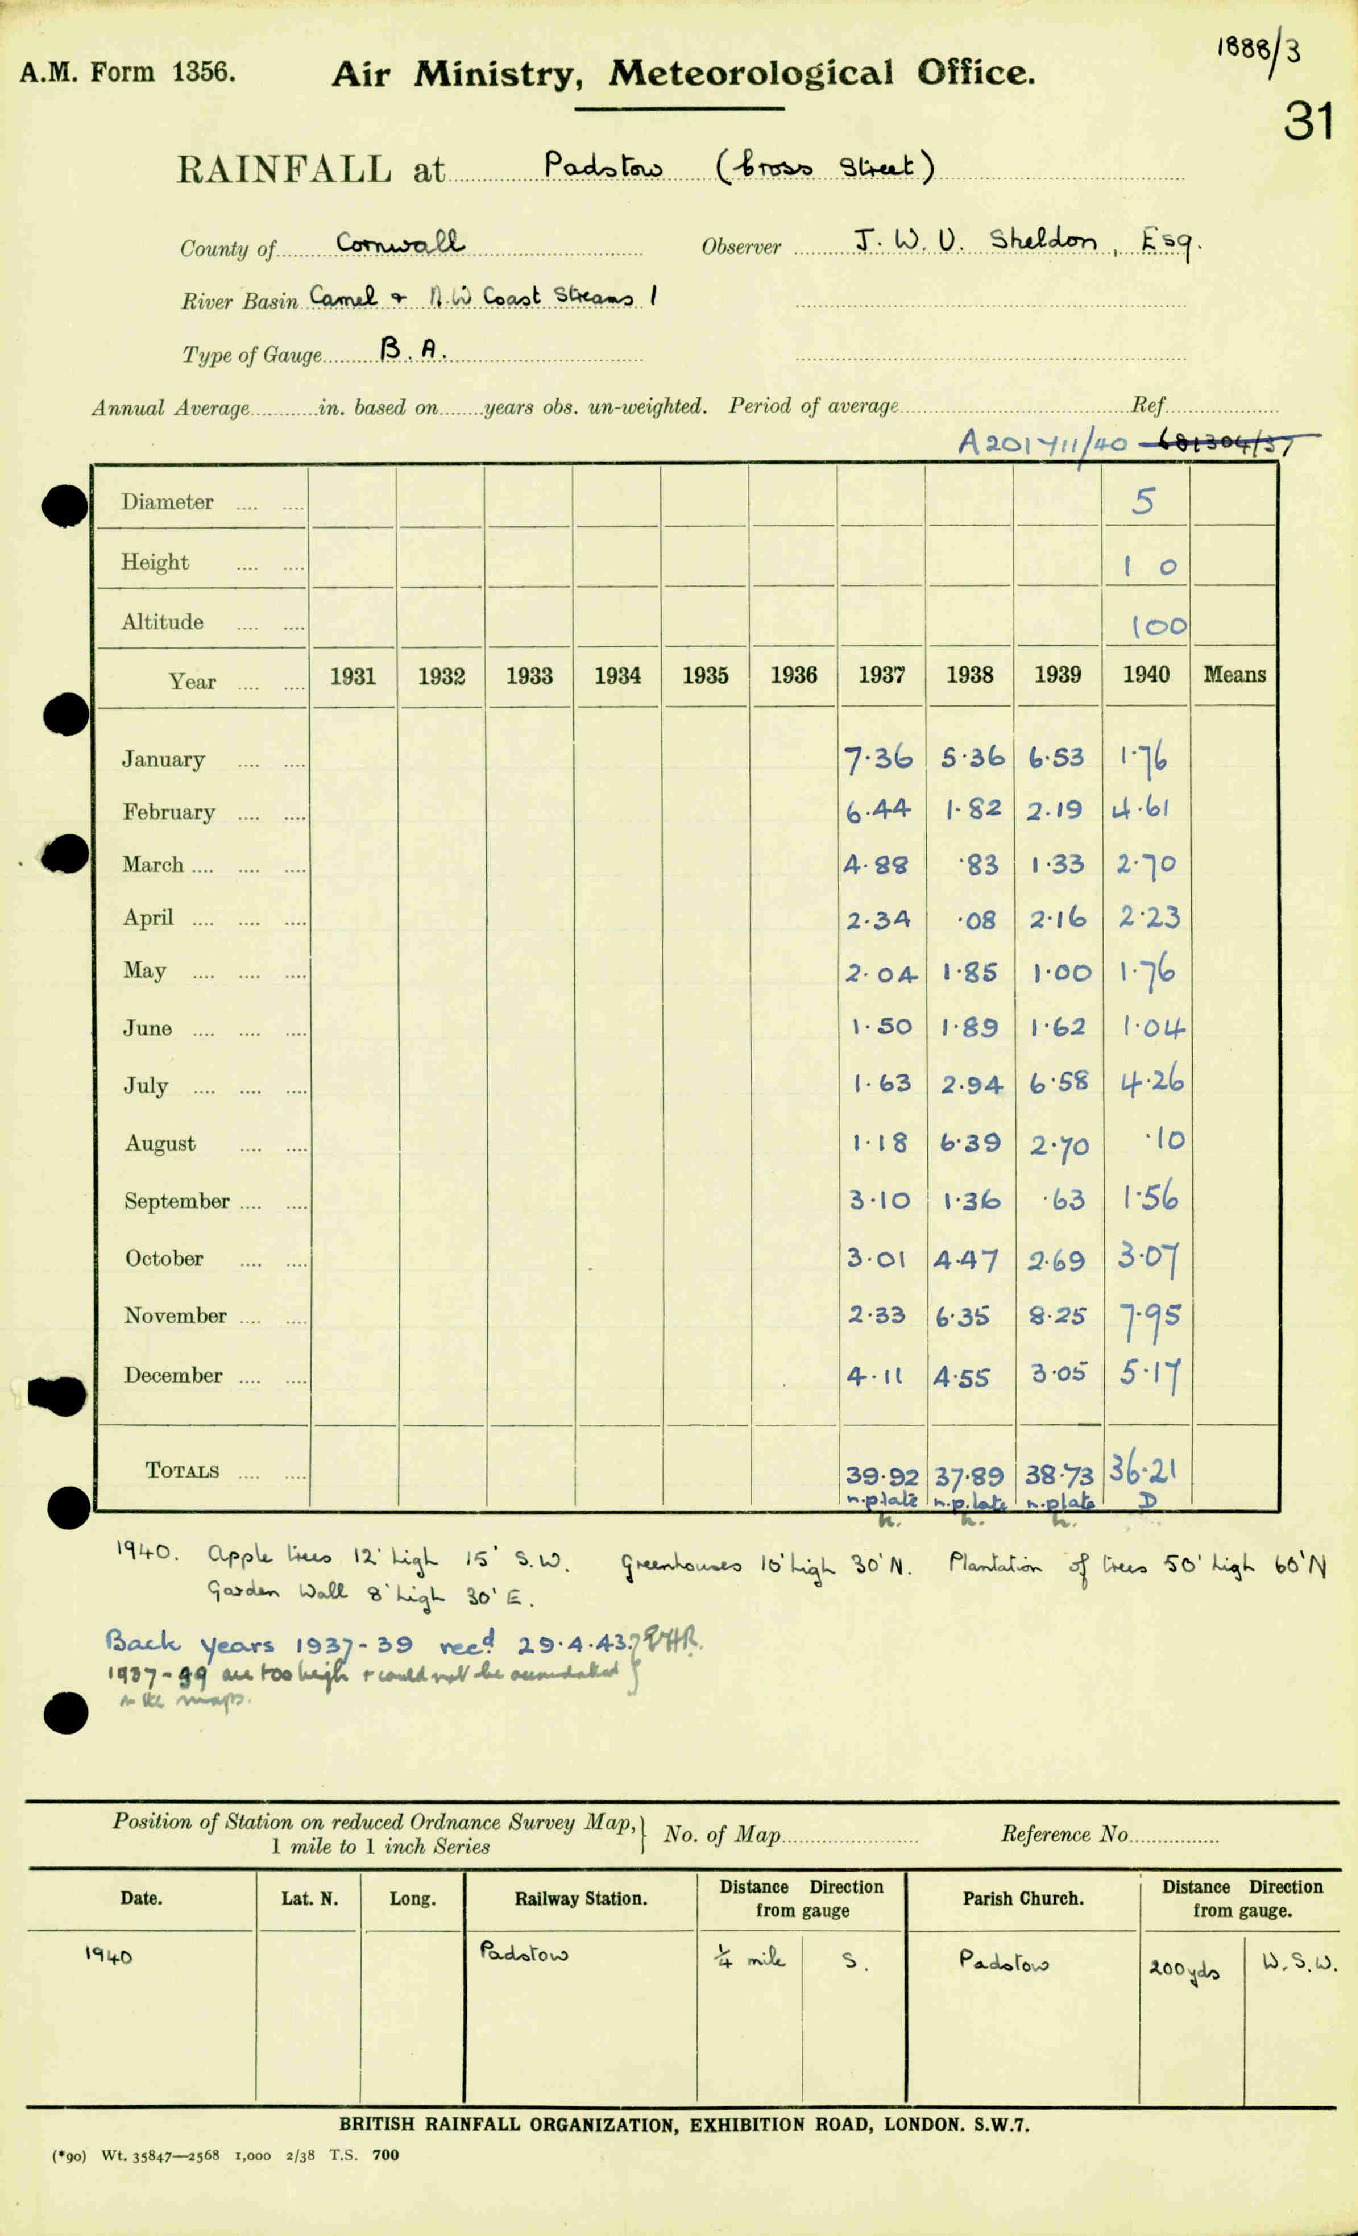 1888/3
A.M. Form 1356. Air Ministry, Meteorological Office.
31
RAINFALL at Padstow (Cross Street)
County of Cornwall Observer J. W. U. Sheldon, Esq.
River Basin Camel + N.W Coast Streams 1
Type of Gauge B.A.
Annual Average in. based on years obs. un-weighted. Period of average Ref.
A201711/40 681304/37
Diameter 5
Height 1 0
Altitude 100
Year 1931 1932 1933 1934 1935 1936 1937 1938 1939 1940 Means
January 7.36 5.36 6.53 1.76
February 6.44 1.82 2.19 4.61
March 4.88 .83 1.33 2.70
April 2.34 .08 2.16 2.23
May 2.04 1.85 1.00 1.76
June 1.50 1.89 1.62 1.04
July 1.63 2.94 6.58 4.26
August 1.18 6.39 2.70 .10
September 3.10 1.36 .63 1.56
October 3.01 4.47 2.69 3.07
November 2.33 6.35 8.25 7.95
December 4.11 4.55 3.05 5.17
TOTALS 39.92 37.89 38.73 36.21
n.p.late n.p.late n.p.late D
h. h. h.
1940. Apple trees 12' high 15' S.W. Greenhouses 10' high 30' N. Plantation of trees 50' high 60' N
Garden Wall 8' high 30' E.
Back years 1937-39 recd 29.4.43.
1937-39 are too high + could not be
on the maps.
Position of Station on reduced Ordnance Survey Map, 1 mile to 1 inch Series No. of Map Reference No.
Date. Lat. N. Long. Railway Station. Distance Direction from gauge Parish Church. Distance Direction from gauge.
1940 Padstow ¼ mile S. Padstow 200yds W.S.W.
BRITISH RAINFALL ORGANIZATION, EXHIBITION ROAD, LONDON. S.W.7.
(*90) Wt. 35847—2568 1,000 2/38 T.S. 700